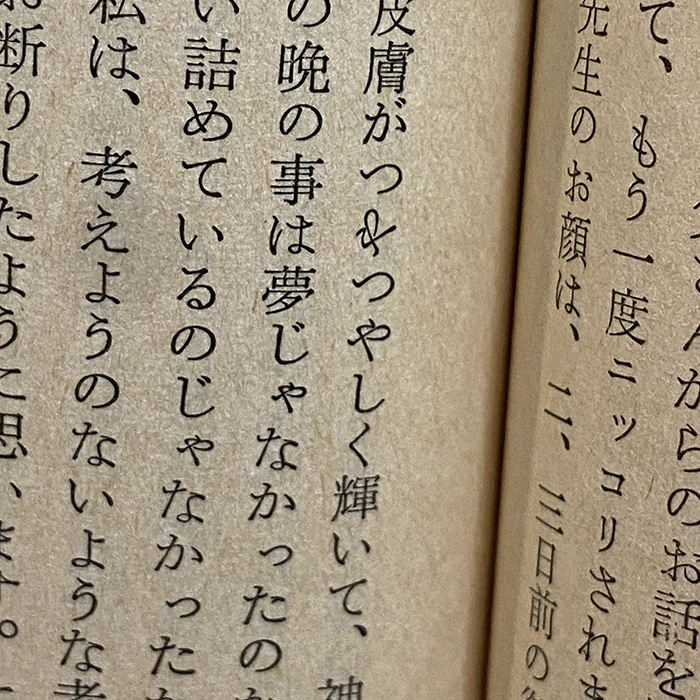 んからのお話を
て、もう一度ニッコリされま
先生のお顔は、二、三日前の
皮膚がつやつやしく輝いて、神
の晩の事は夢じゃなかったのか
い詰めているのじゃなかった
私は、考えようのないような考
お断りしたように思います。